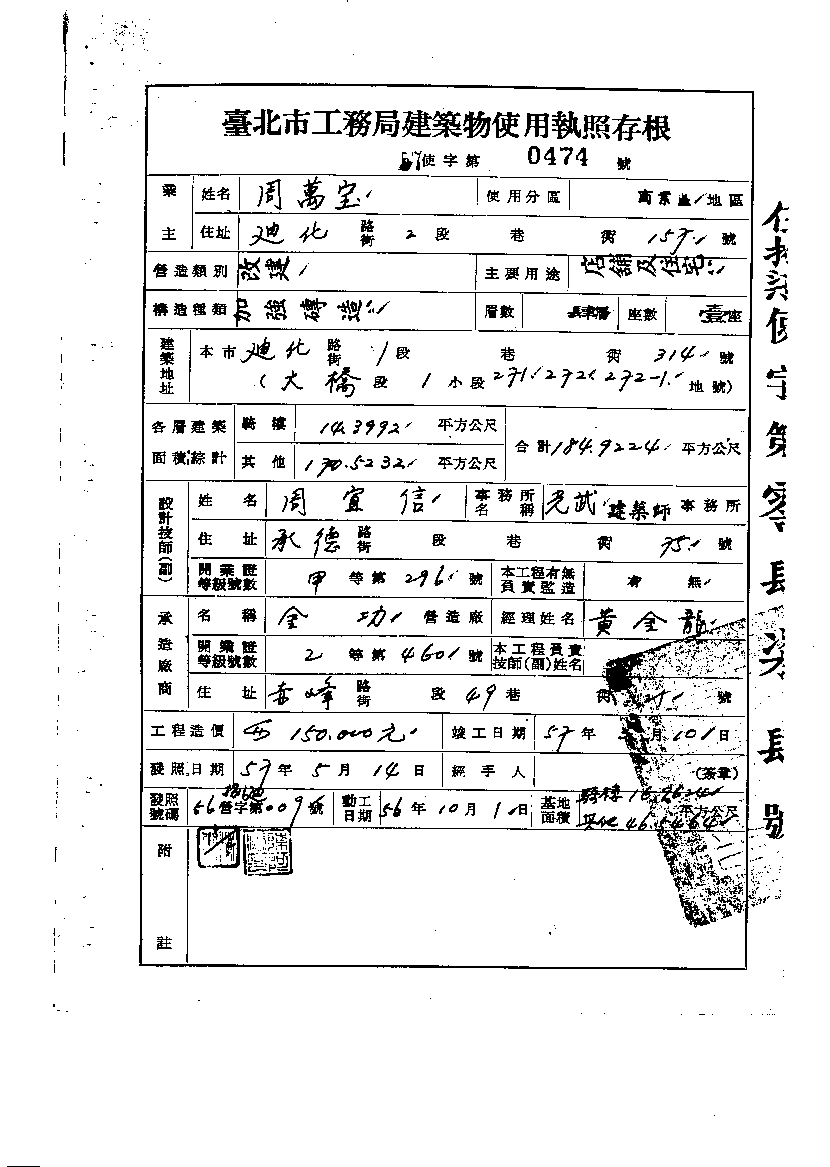 臺北市工務局建築物使用執照存根
57使字第 0474 號
業主 姓名 周萬宝 使用分區 商業區地區
住址 迪化路街 2段 巷 街 157 號
營造類別 改建 主要用途 店鋪及住宅
構造種類 加強磚造 層數 座數 壹座
建築地址 本市 迪化路街 1段 巷 街 314 號
(大橋段 1小段 271.272.272-1. 地號)
各層建築面積綜計 騎樓 14.3992 平方公尺 合計 184.9224 平方公尺
其他 170.5232 平方公尺
設計技師(副) 姓名 周宜信 事務所名稱 光武建築師事務所
住址 承德路街 段 巷 街 75 號
開業證等級號數 甲等第 296 號 本工程有無負責監造 有 無
承造廠商 名稱 全功 營造廠 經理姓名 黃全龍
開業證等級號數 2等第 460 號 本工程負責技師(副)姓名
住址 赤峰路街 段 49巷 街 號
工程造價 150.000元 竣工日期 57年 月10日
發照日期 57年5月14日 經手人 (簽章)
發照號碼 56營字第009號 動工日期 56年10月1日 基地面積 騎樓
其他 46.5464 平方公尺
附註